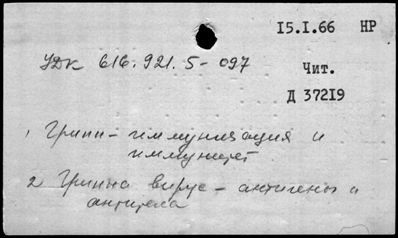 15.I.66 НР
УДК 616.921.5-097
Чит.
Д 37219
1 Грипп - иммунизация и
иммунитет
2 Гриппа вирус - антигены и
антитела